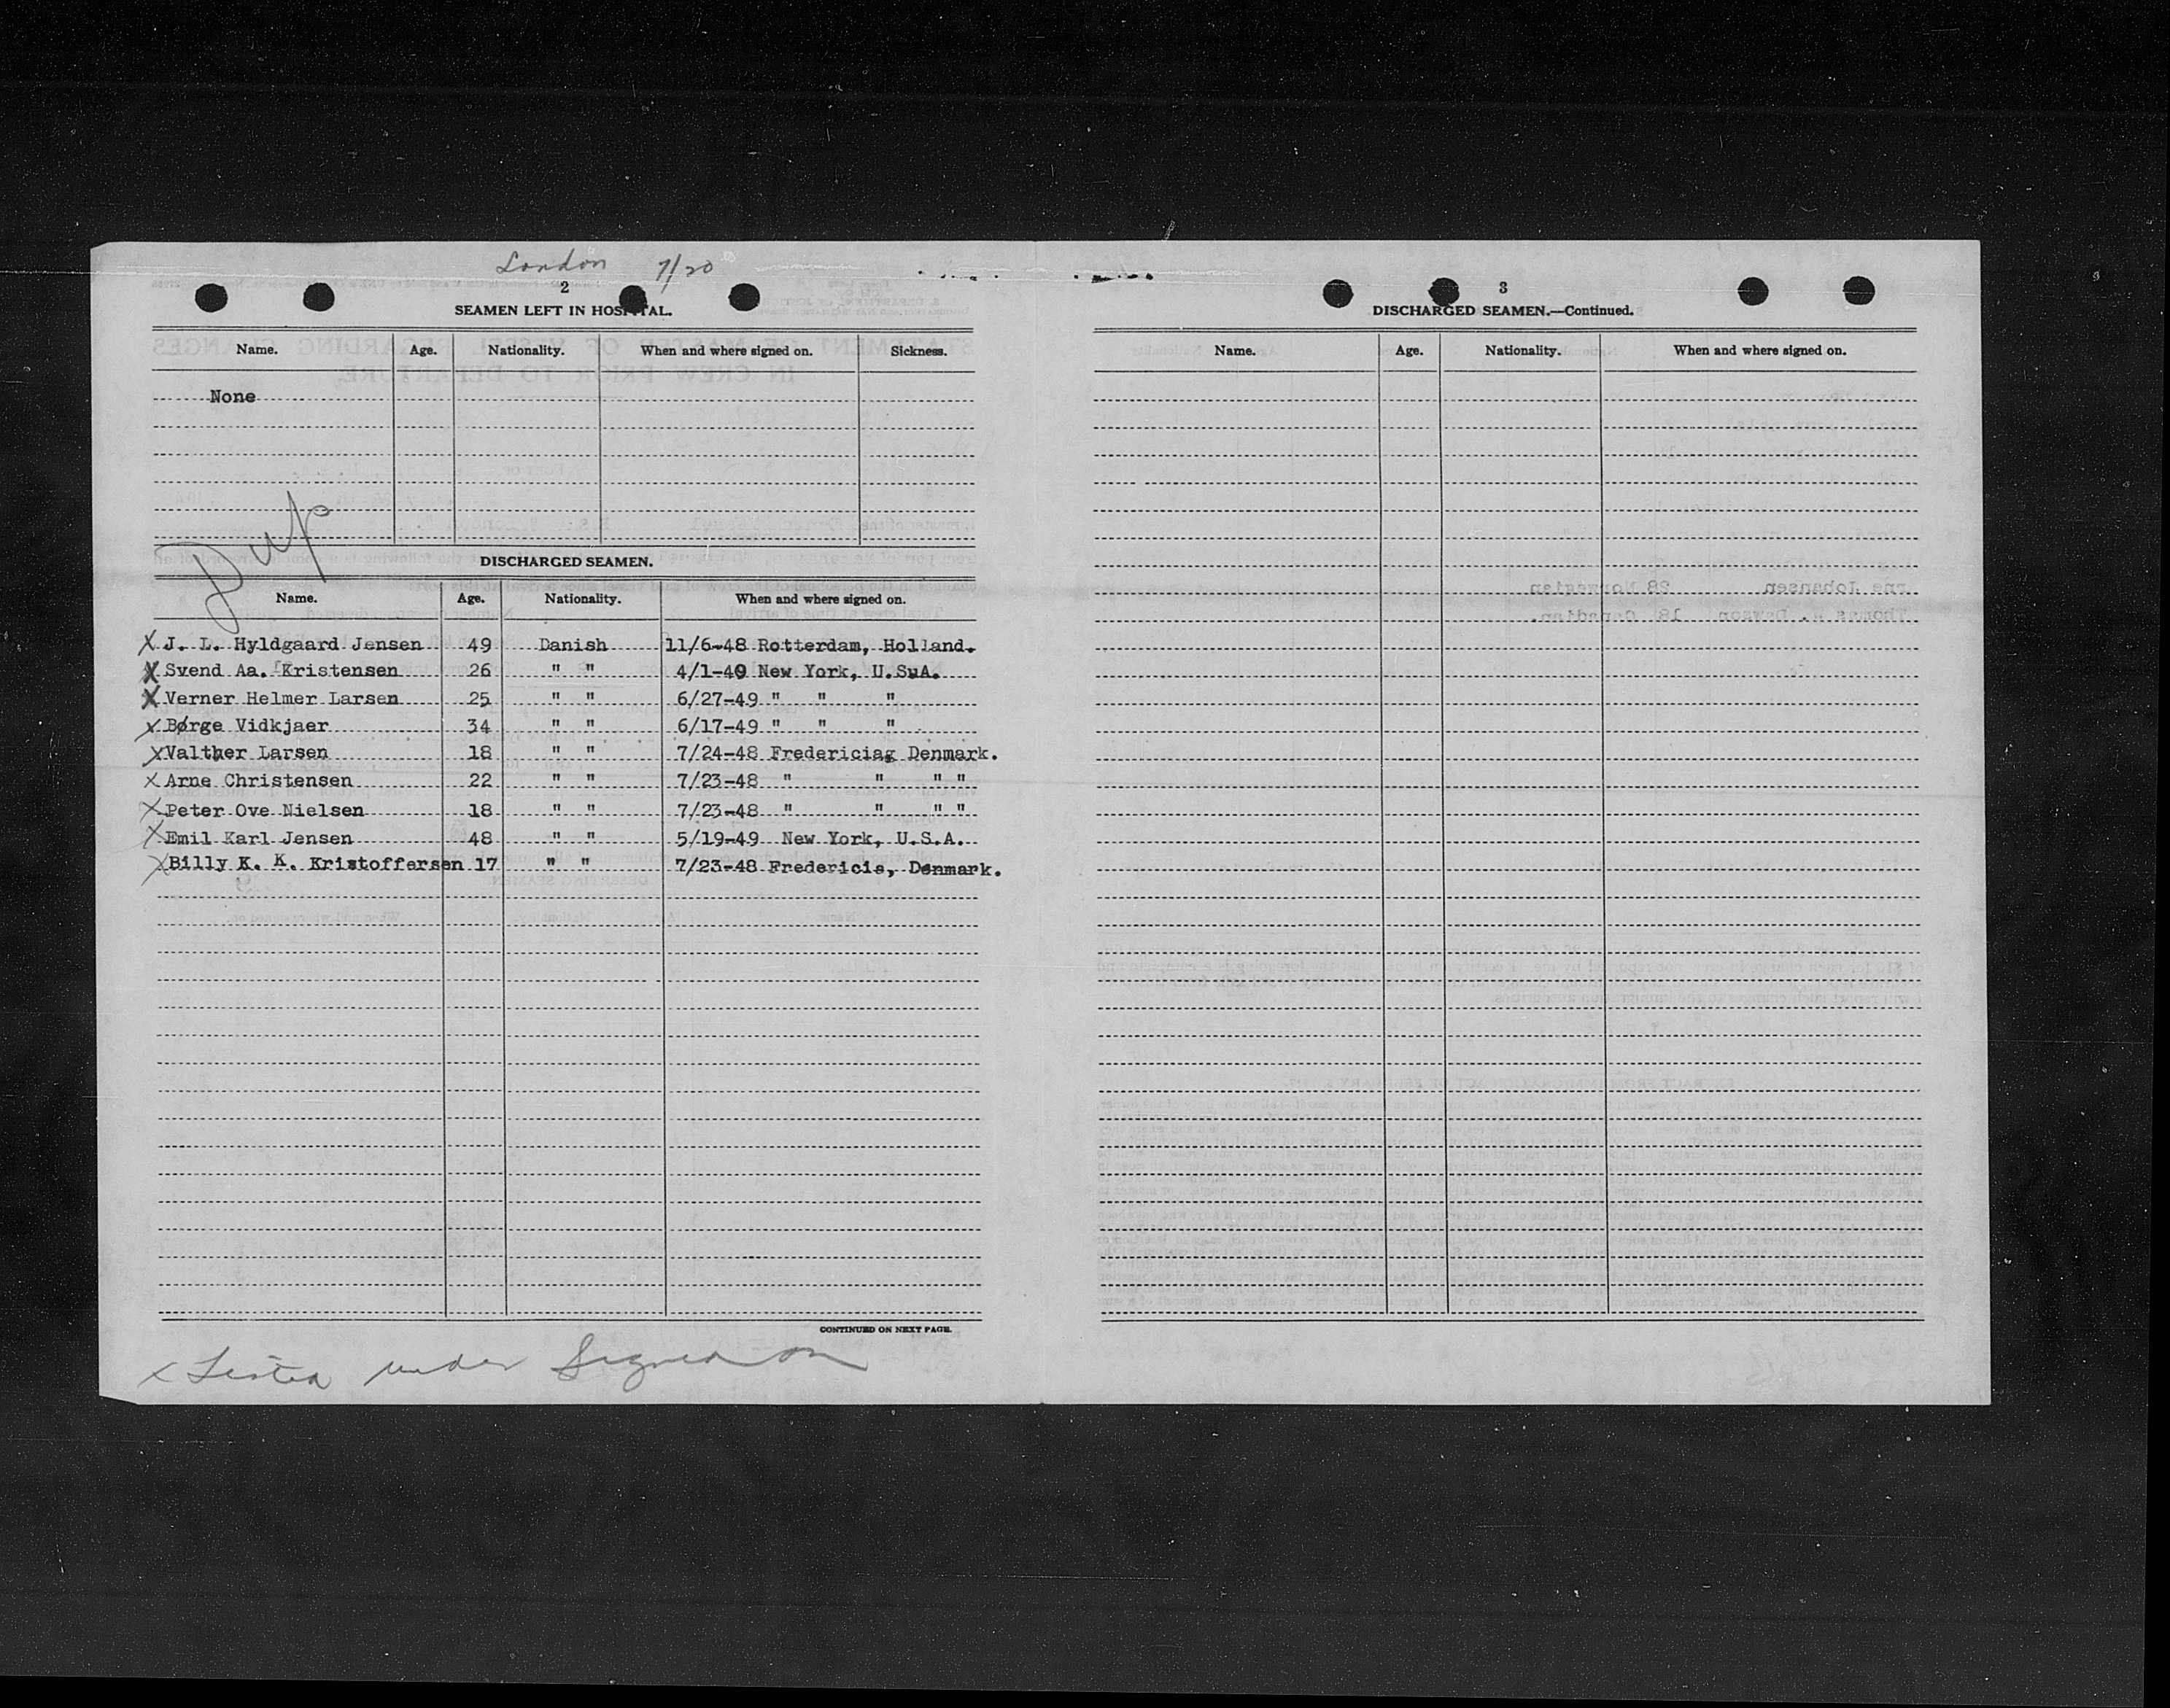 London 7/20
2
SEAMEN LEFT IN HOSPITAL.
Name. Age. Nationality. When and where signed on. Sickness.
None
Dup
DISCHARGED SEAMEN.
Name. Age. Nationality. When and where signed on.
X J. L. Hyldgaard Jensen 49 Danish 11/6-48 Rotterdam, Holland.
X Svend Aa. Kristensen 26 " " 4/1-49 New York, U.S.A.
X Verner Helmer Larsen 25 " " 6/27-49 " " "
X Børge Vidkjaer 34 " " 6/17-49 " " "
X Valther Larsen 18 " " 7/24-48 Fredericia, Denmark.
X Arne Christensen 22 " " 7/23-48 " " " "
X Peter Ove Nielsen 18 " " 7/23-48 " " " "
X Emil Karl Jensen 48 " " 5/19-49 New York, U.S.A.
X Billy K. K. Kristoffersen 17 " " 7/23-48 Fredericia, Denmark.
CONTINUED ON NEXT PAGE.
x Listed under Signed on
3
DISCHARGED SEAMEN.—Continued.
Name. Age. Nationality. When and where signed on.